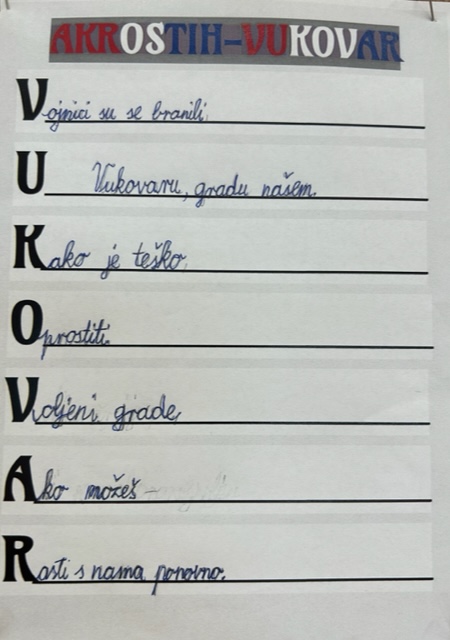 AKROSTIH-VUKOVAR
Vojnici su se branili,
U Vukovaru, gradu našem.
Kako je teško,
Oprostiti.
Voljeni grade,
Ako možeš -
Rasti s nama ponovno.